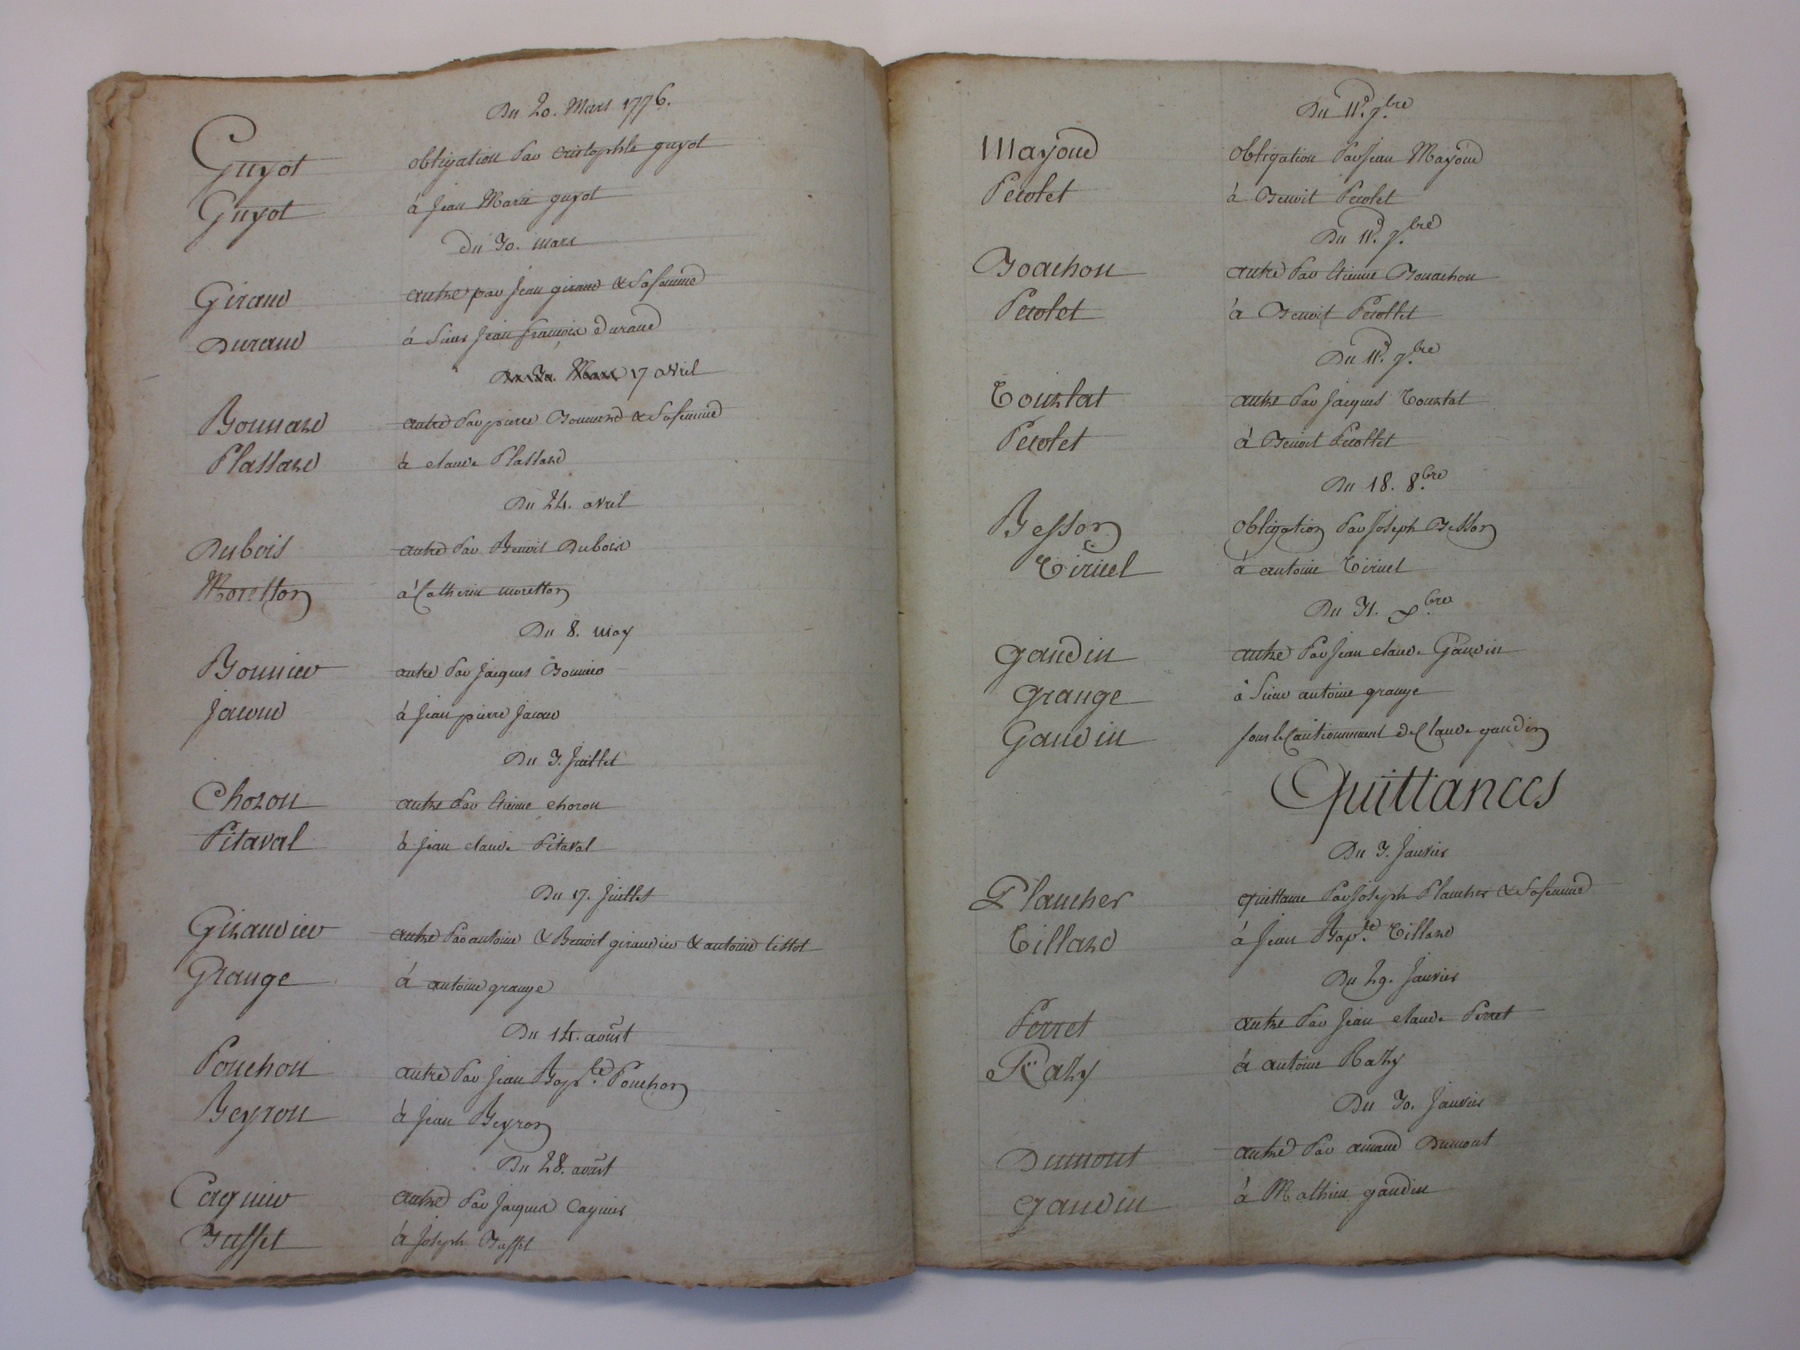 Du 20. Mars 1776.
Guyot obligation Par Cristophle guyot
Guyot à Jean Marie guyot
Du 30. mars
Giraud autre par Jean giraud & sa femme
Durand à Sieur Jean françois durand
17 avril
Bonnard autre Par pierre Bonnard & sa femme
Plassard à claude Plassard
Du 24. avril
Dubois autre Par Benoit Dubois
Moretton à Catherin moretton
Du 8. may
Bonnier autre Par Jacques Bonnier
Jacoud à Jean pierre Jacoud
Du 3. Juillet
Chozon autre Par Etienne chozon
Pitaval à Jean claude Pitaval
Du 17. Juillet
Giraudier autre Par antoine & Benoit giraudier & antoine tissot
Grange à antoine grange
Du 14. août
Ponchon autre Par Jean Bap.te Ponchon
Beyron à Jean Beyron
Du 28. août
Cagnier autre Par Jacques Cagnier
Buffet à Joseph Buffet
Du 11. 9.bre
Mayoud obligation Par Jean Mayoud
Pecolet à Benoit Pecolet
Du 11. 9.bre
Boachon autre Par Etienne Bouachon
Pecolet à Benoit Pecollet
Du 11. 9.bre
Tourlat autre Par Jacques Tourlat
Pecolet à Benoit Pecollet
Du 18. 8.bre
Besson obligation Par Joseph Besson
Tirivel à antoine Tirivel
Du 31. bre
Gaudin autre Par Jean claude Gaudin
Grange à Sieur antoine grange
Gaudin sous le Cautionnement de Claude gaudin
Quittances
Du 3. Janvier
Plancher quittance Par Joseph Plancher & sa femme
Tillard à Jean Bap.te Tillard
Du 29. Janvier
Perret autre Par Jean claude Perret
Razy à antoine Razy
Du 30. Janvier
Dumont autre Par amand Dumont
Gaudin à Mathieu gaudin